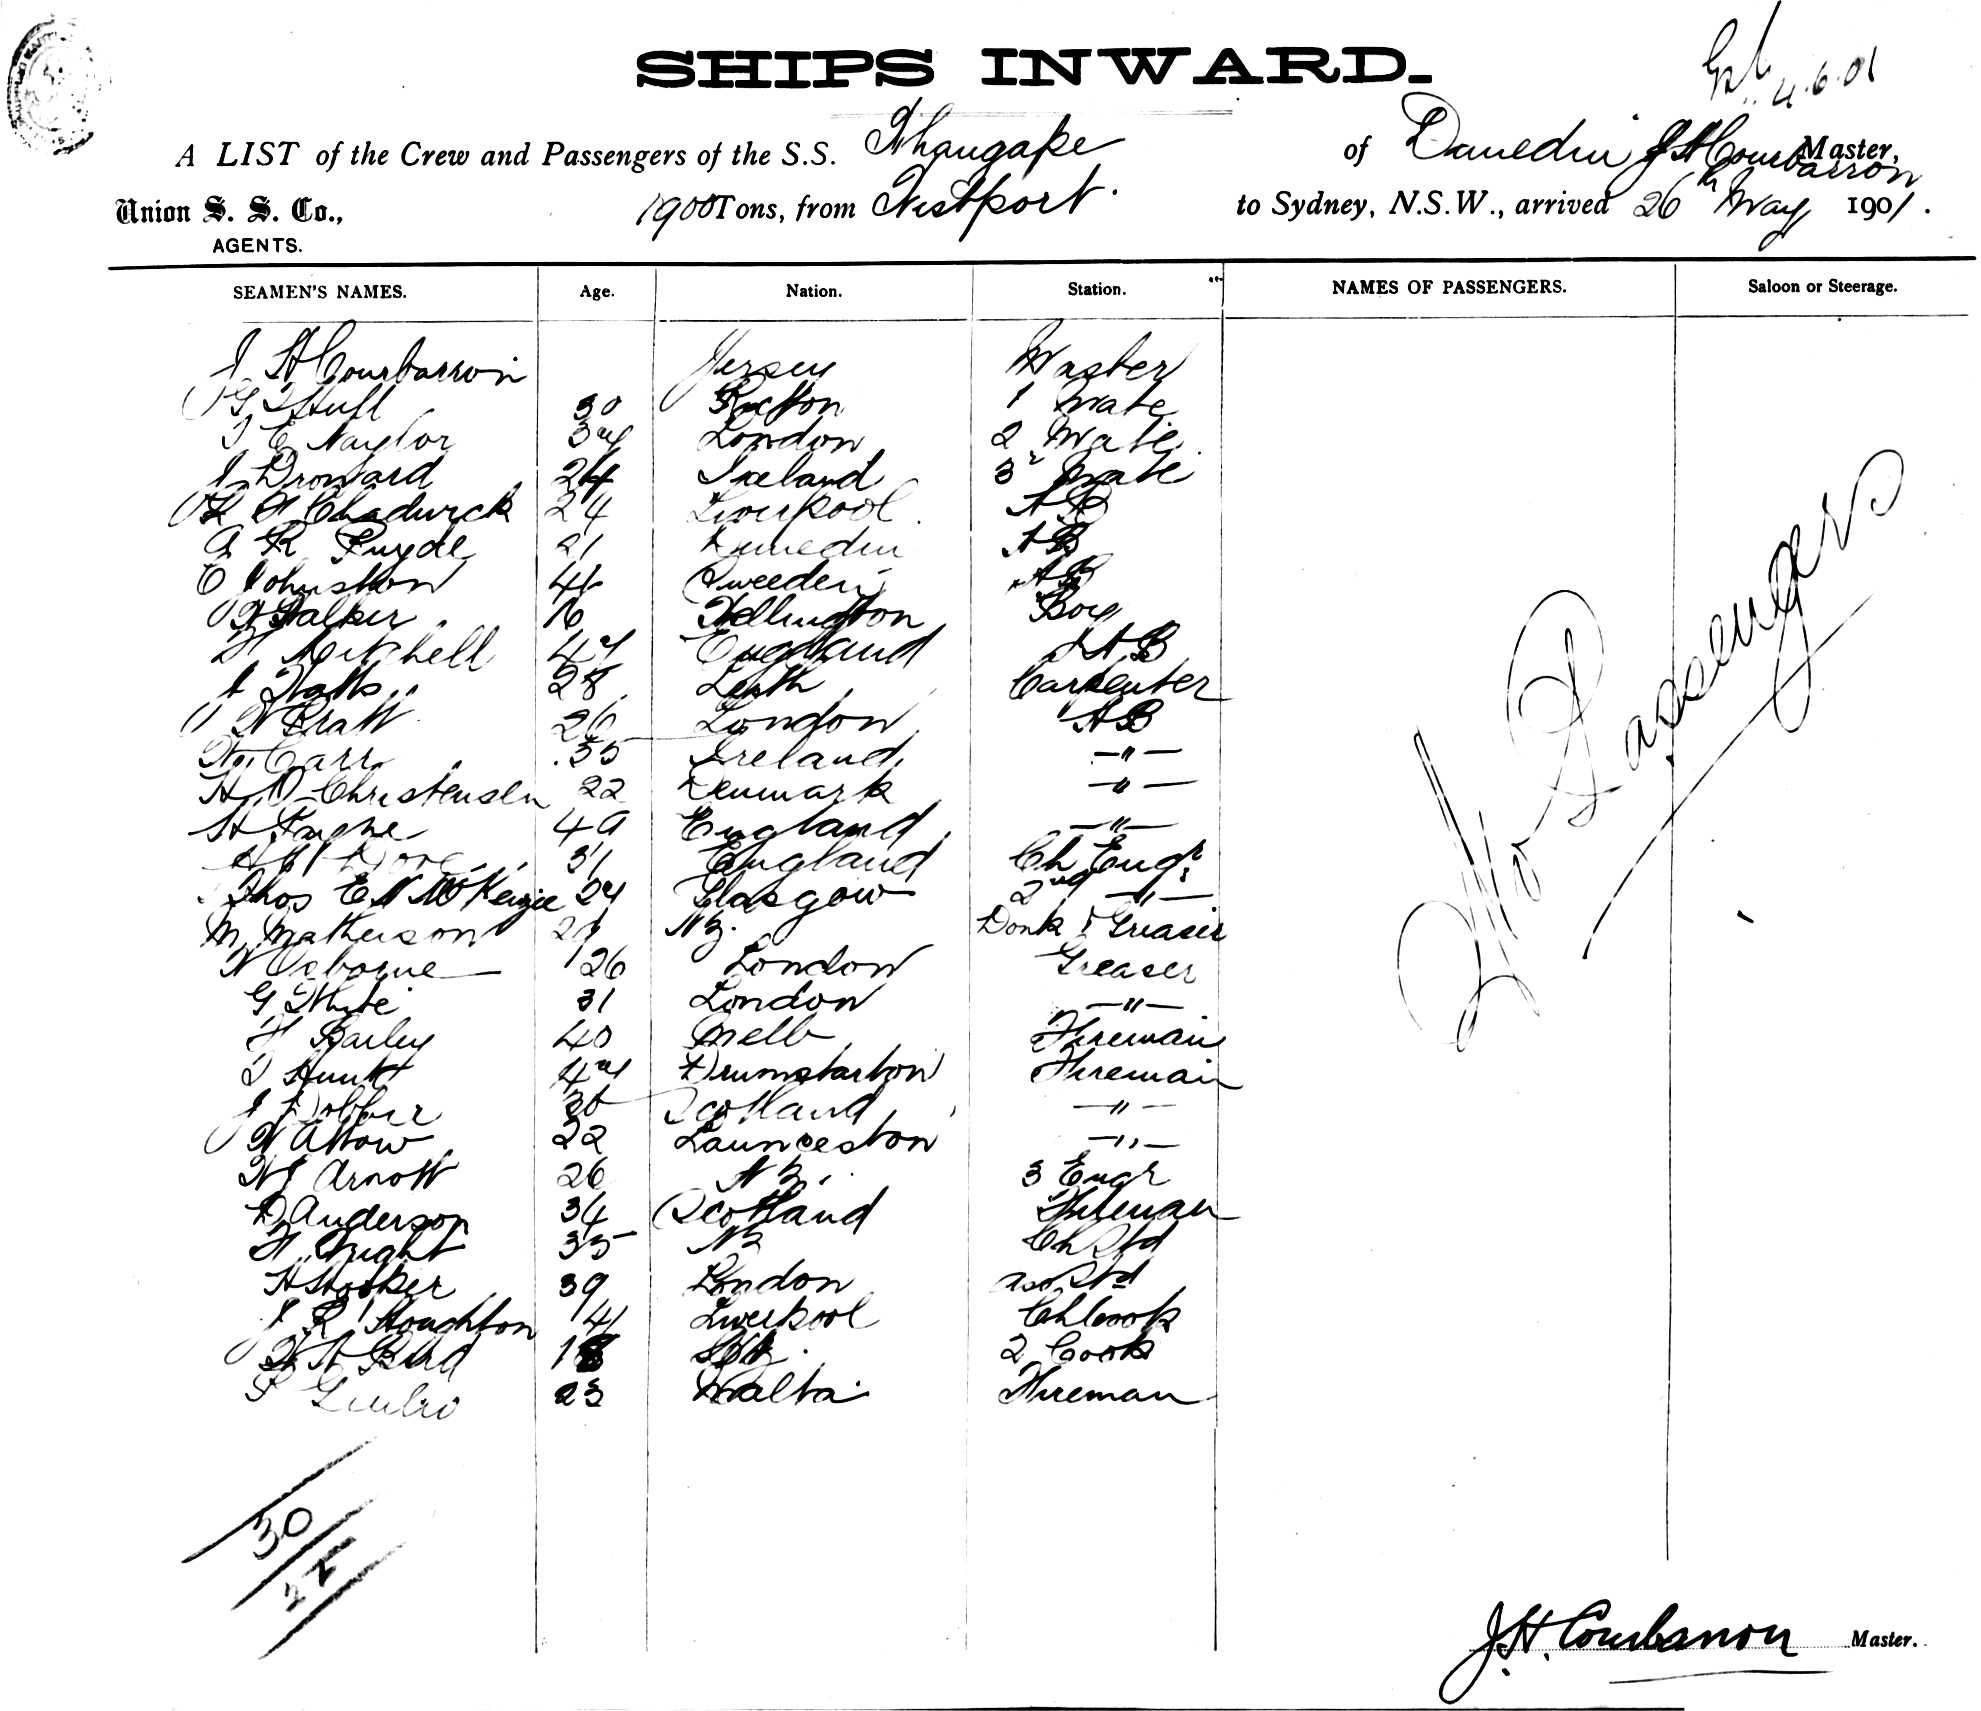 SHIPS INWARD.
4.6.01
A LIST of the Crew and Passengers of the S.S. Whangape of Dunedin J H Courbarron Master,
Union S. S. Co., 1900 Tons, from Westport. to Sydney, N.S.W., arrived 26th May 1901.
AGENTS.
SEAMEN'S NAMES. Age. Nation. Station. NAMES OF PASSENGERS. Saloon or Steerage.
J H Courbarron Jersey Master
G Huff 30 1 Mate
T E Naylor 34 London 2 Mate
J Dronard 24 Iceland 3r Mate
Chadwick 24 Liverpool AB
A R Fuyde 21 Dunedin AB
C Johnston 44 Sweeden AB
W Walker 16 Wellington Boy
H Mitchell 44 England AB
J Watts 28 Leith Carpenter
W Pratt 26 London AB
W Carr 35 Ireland —"—
H O Christensen 22 Denmark —"—
H Fughe 49 England —"—
Dore 31 England Ch Engr
Thos E N McKenzie 24 Glasgow 2nd —"—
M Matheson 21 NZ. Donk & Greaser
W Osborne 26 London Greaser
G White 31 London —"—
H Bailey 40 Melb Fireman
T Hunt 44 Drumbarton Fireman
J Dobbie 36 Scotland —"—
W Attow 22 Launceston —"—
W J Arnott 26 NZ. 3 Engr
D Anderson 34 Scotland Fireman
H Wright 35 NZ Ch Std
H Hooker 39 London ass Std
J R Houghton 41 Liverpool Ch Cook
W A Bird 18 2 Cook
23 Malta Fireman
No Passengers
30
J. H. Courbarron Master.